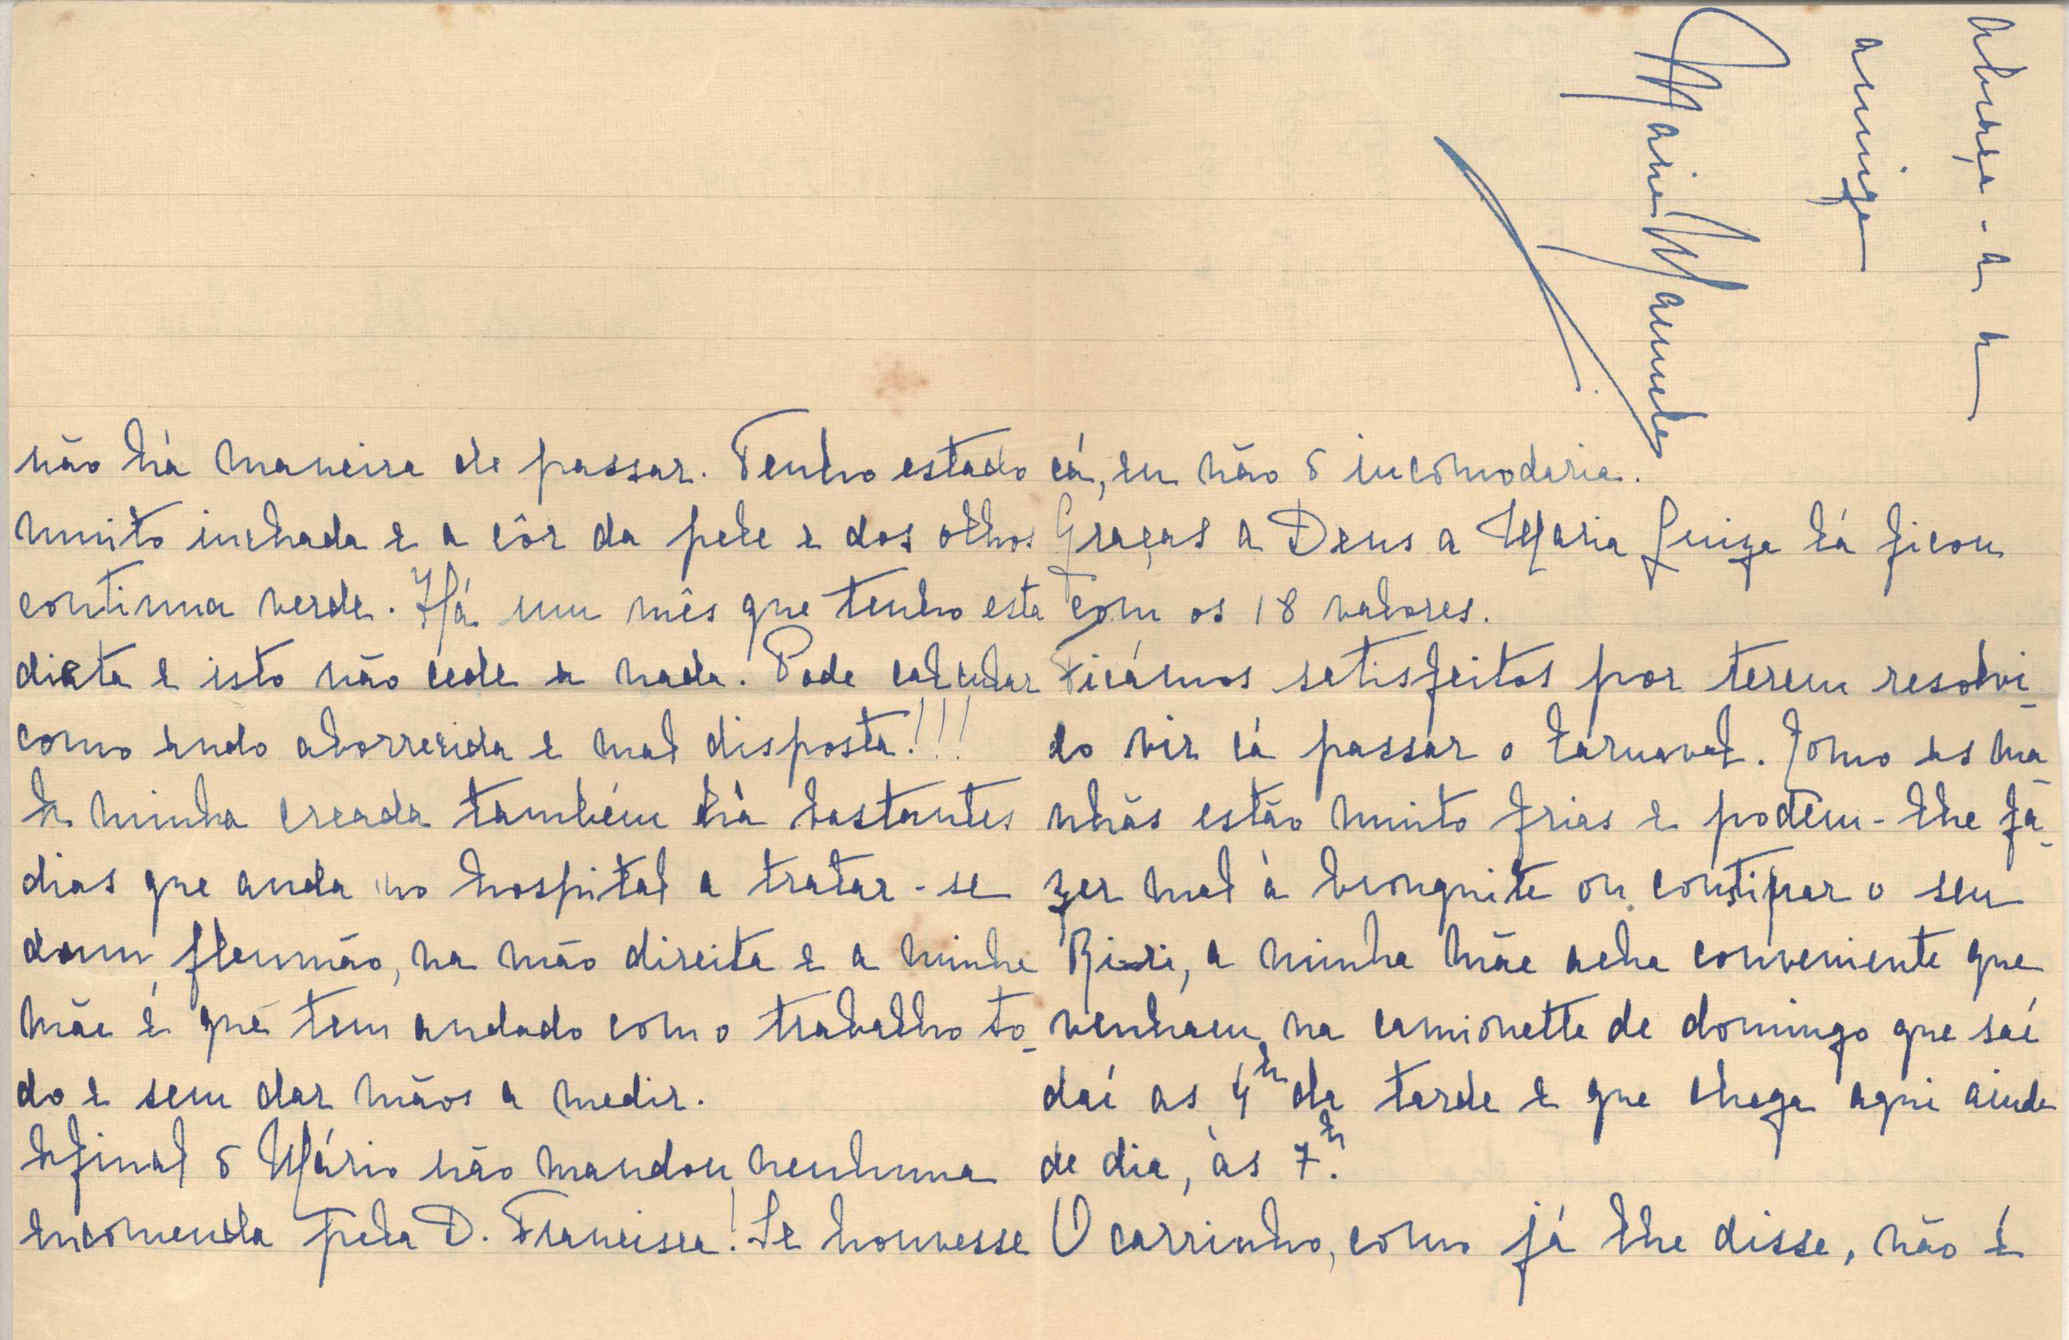 não há maneira de passar. Tenho estado
muito inchada e a côr da pele e dos olhos
continua verde. Há um mês que tenho esta
dieta e isto não cede a nada. Pode calcular
como ando aborrecida e mal disposta!!!
A minha creada também há bastantes
dias que anda no hospital a tratar-se
dum fleumão, na mão direita e a minha
mãe é que tem andado com o trabalho to-
do e sem dar mãos a medir.
Afinal o Mário não mandou nenhuma
encomenda pela D. Francisca! Se houvesse
cá, eu não o incomodaria.
Graças a Deus a Maria Luiza lá ficou
com os 18 valores.
Ficámos satisfeitos por terem resolvi-
do vir cá passar o Carnaval. Como as ma-
nhãs estão muito frias e podem-lhe fa-
zer mal à bronquite ou constipar o seu
Riri, a minha mãe acha conveniente que
venham na camionette de domingo que saí
daí as 4h da tarde e que chega aqui ainda
de dia, às 7h.
O carrinho, como já lhe disse, não é
abraça-a a
amiga
Maria Manuela